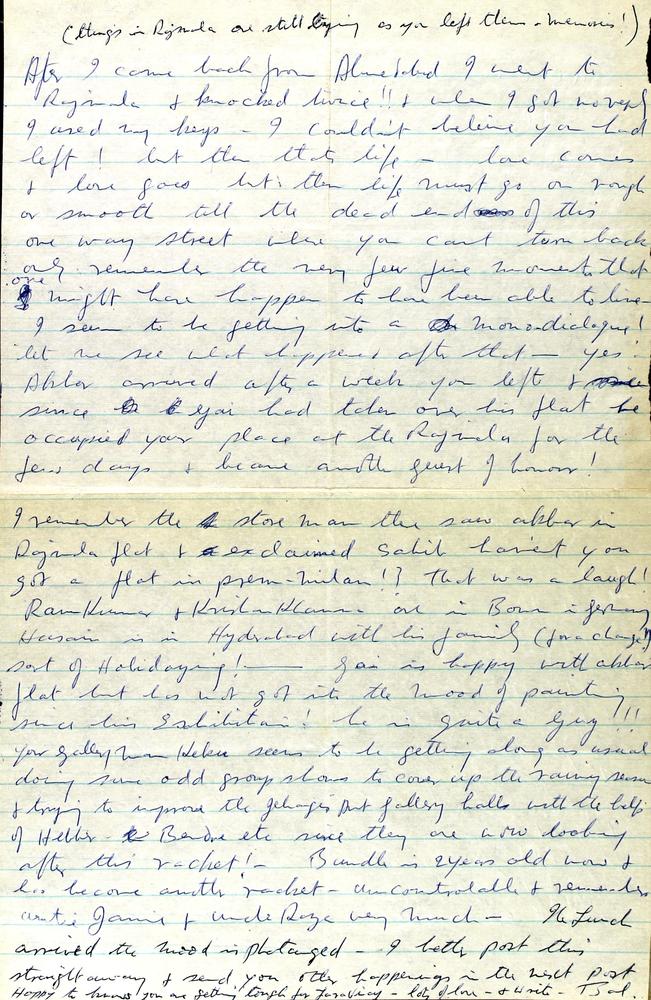 (things in Rajmala are still lying as you left them - memories!)
After I came back from Ahmedabad I went to
Rajmala & knocked twice!! & when I got no reply
I used my keys - I couldn't believe you had
left! but then thats life - love comes
& love goes but then life must go on rough
or smooth till the dead end of this
one way street where you cant turn back
only remember the very few fine moments that
one might have happen to have been able to live -
I seem to be getting into a mono-dialogue!
let me see what happened after that - yes!
Akbar arrived after a week you left &
since Gai had taken over his flat he
occupied your place at the Rajmala for the
few days & became another guest of honour!
I remember the store man there saw akbar in
Rajmala flat & exclaimed Sahib haven't you
got a flat in prem-milan!? That was a laugh!
Ram Kumar & Krishan Khanna are in Bonn in Germany
Husain is in Hyderabad with his family (for a change!)
sort of Holidaying! - Gai is happy with akbar
flat but has not got into the mood of painting
since his Exhibition! he is quite a Guy!!!
your gallery man Keku seems to be getting along as usual
doing some odd group shows to cover up the rainy season
& trying to improve the gallery halls with the help
of Hebbar - Bendre etc since they are now doobing
after this racket! - Bundle is 2 years old now &
has become another racket - uncontrolable & remembers
auntie Janine & uncle Raza very much - The Lunch
arrived the mood is photanged - I better post this
straightaway & send you other happenings in the next post
Happy to know you are getting tough for - lots of love - & write - Bal.